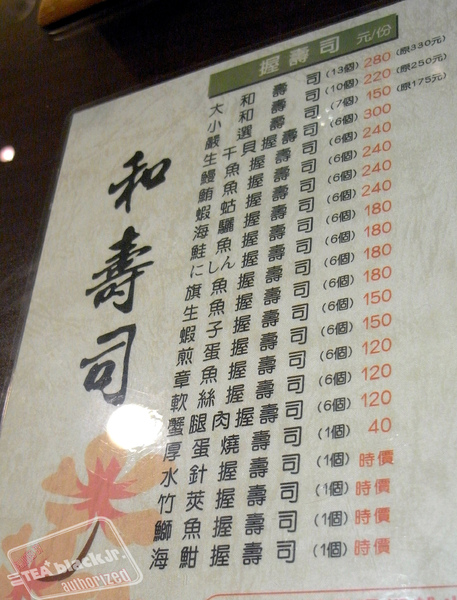 和壽司
握壽司 元/份
大和壽司 (13個) 280 (原330元)
小和壽司 (10個) 220 (原250元)
嚴選壽司 (7個) 150 (原175元)
生干貝握壽司 (6個) 300
鰻魚握壽司 (6個) 240
鮪魚握壽司 (6個) 240
蝦蛄握壽司 (6個) 240
海鱺握壽司 (6個) 240
鮭魚握壽司 (6個) 180
にしん握壽司 (6個) 180
旗魚握壽司 (6個) 180
生魚握壽司 (6個) 180
蝦子握壽司 (6個) 150
煎蛋握壽司 (6個) 150
章魚握壽司 (6個) 120
軟絲握壽司 (6個) 120
蟹腿肉握壽司 (6個) 120
厚蛋燒壽司 (1個) 40
水針握壽司 (1個) 時價
竹莢握壽司 (1個) 時價
鰤魚握壽司 (1個) 時價
海魽握壽司 (1個) 時價
TEA black Jr.
authorized